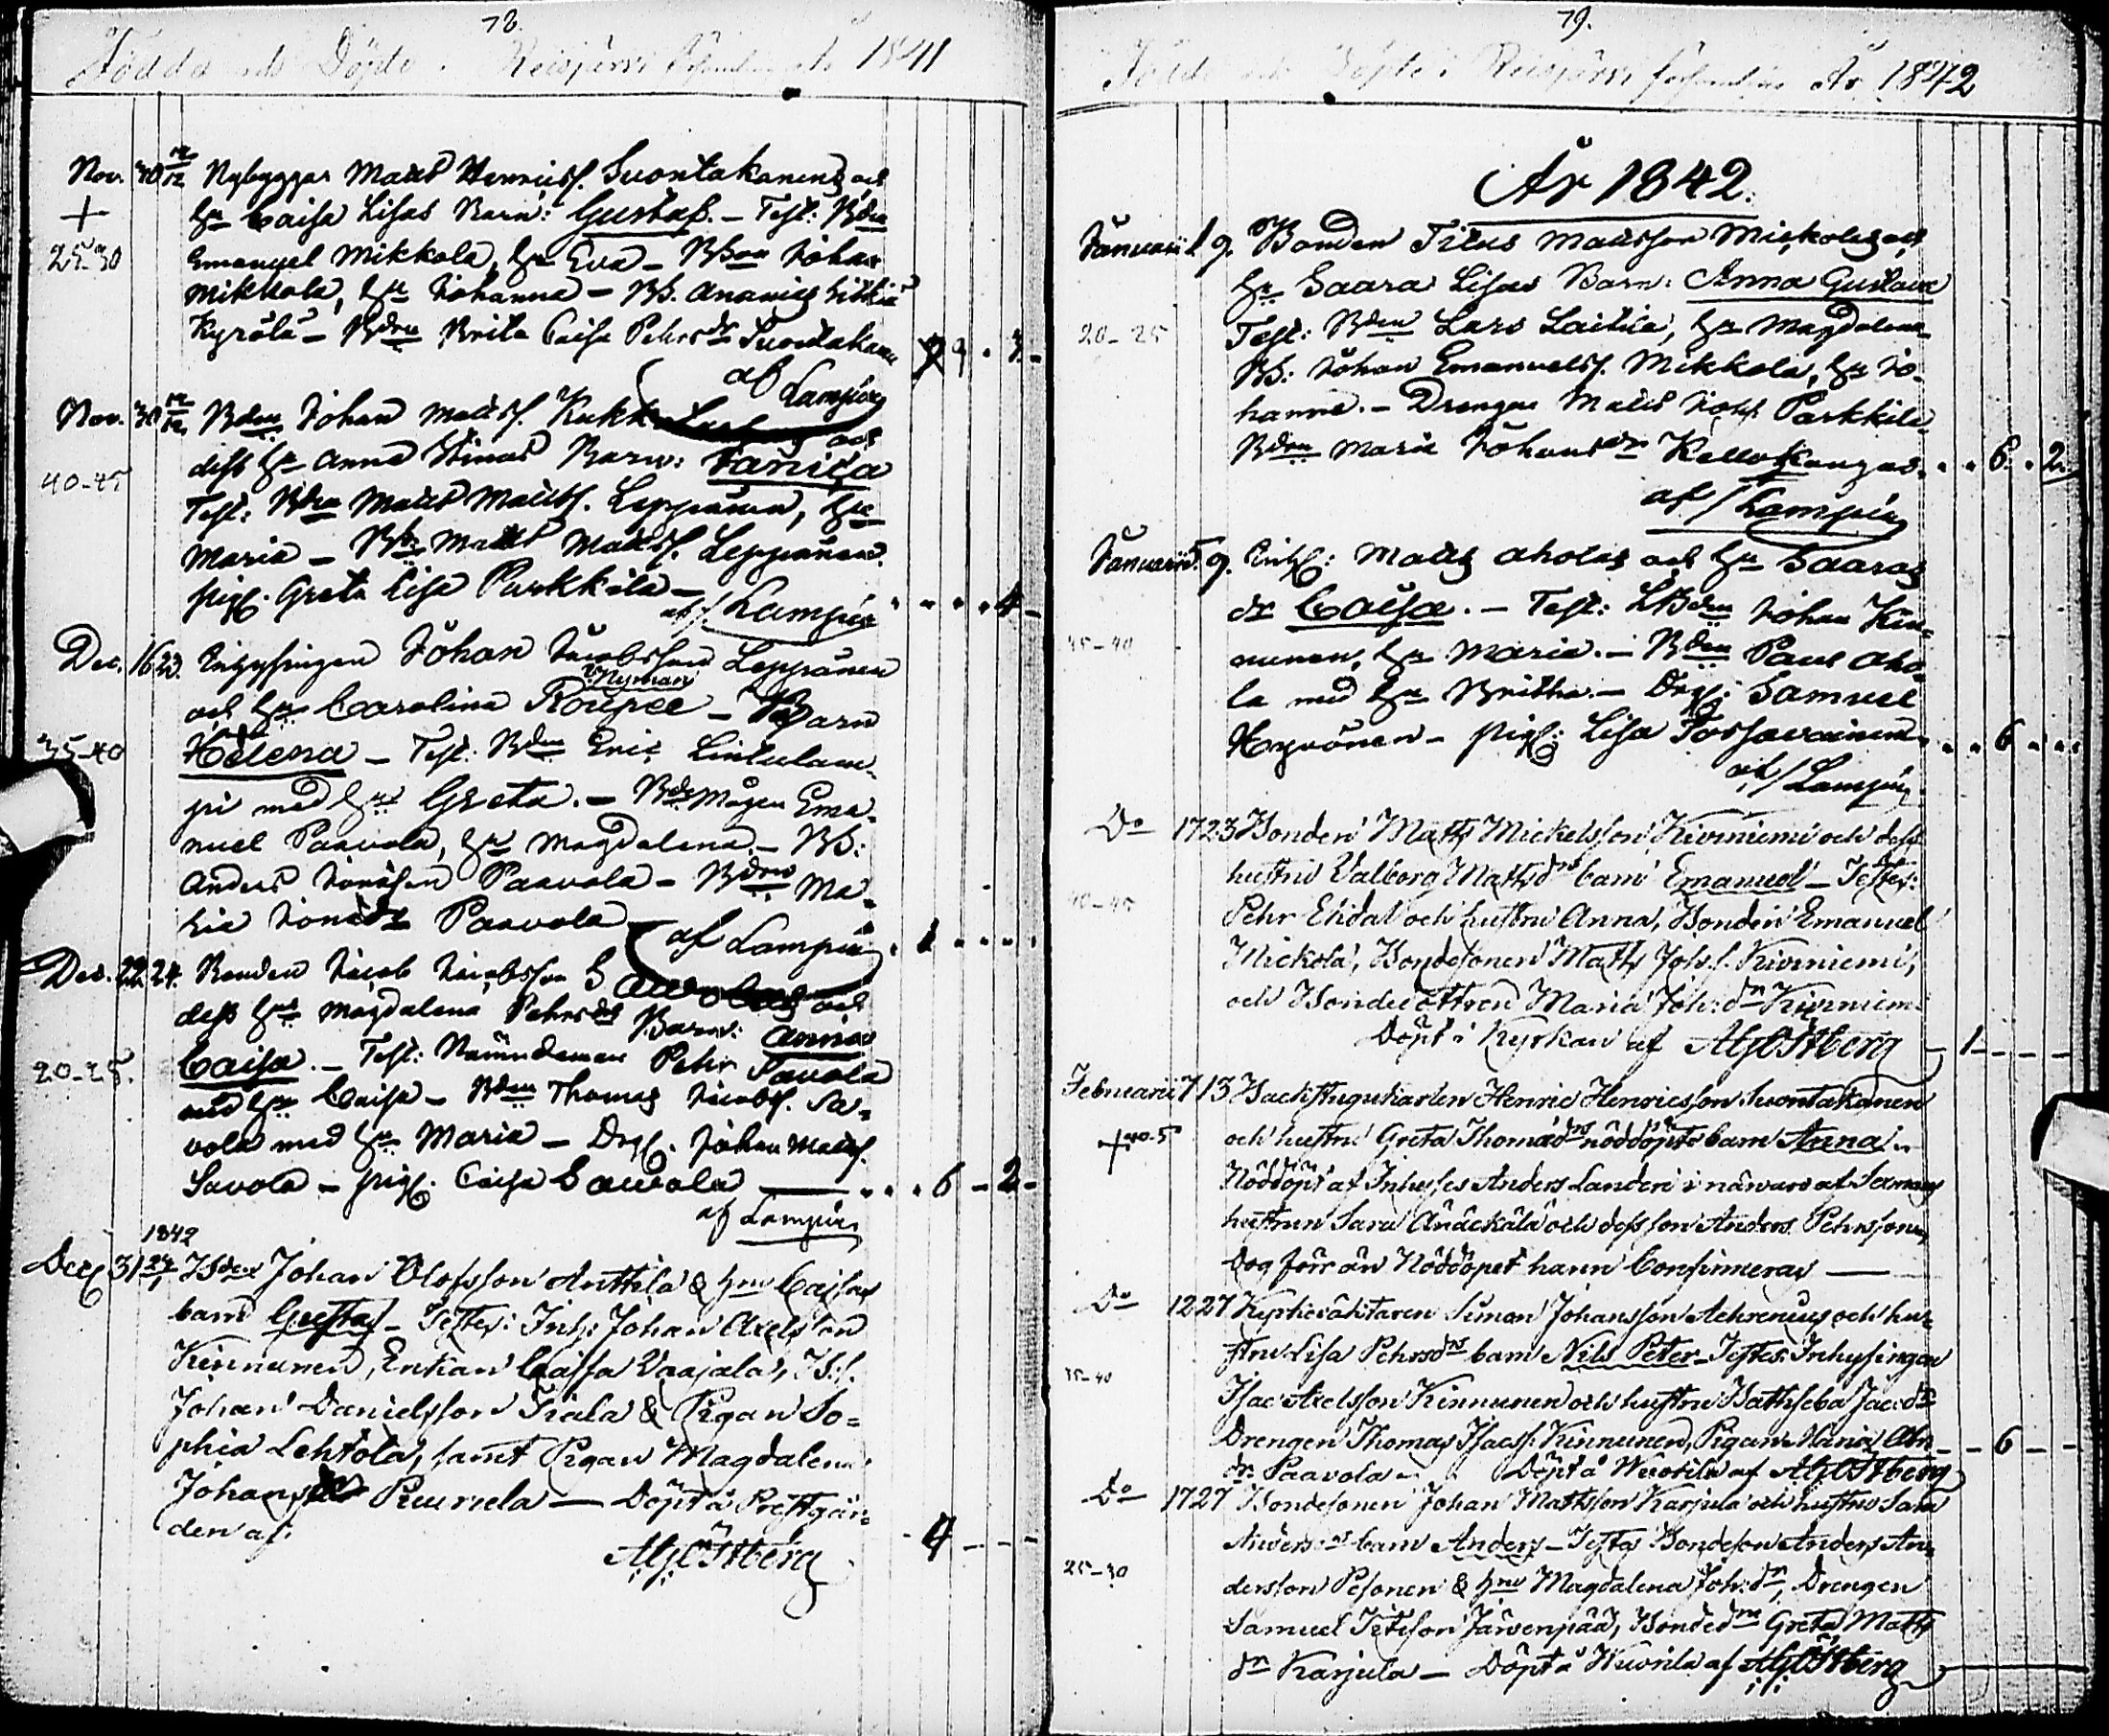 78.
Födda och Döpte i Reisjärvi 1841
Nov. 30 12/12 Nybyggar Matts Henricss. Suontakanens och
+ hu Caisa Lisas Barn: Gustaf. – Test: Bden
25-30 Emanuel Mikkola, hu Eva – Bson Johan
Mikkola, hu Johanna – BS. Ananias
Kyrölä – Bdru Brita Caisa Pehrsdr Suontakanen 9 . 3 –
af Lampén
Nov. 30 12/12 Bden Johan Mattss. och
40-45 dess hu Anna Stinas Barn: Janica
Test: Bden Matts Mattss. Leppänen, hu
Maria – Bds Matts Mattss. Leppänen.
pig. Greta Lisa Parkkila – 4 –
af/ Lampén
Dec. 16 23. Inhysingen Johan Jacobsson Leppänen
Nyman
och hu Carolina Roupee – Barn
35-40 Helena – Test: Bden Eric Lintulam-
pi med hu Greta. – Bdemågen Ema-
nuel Paavola, hu Magdalena – BS:
Anders Paavola – Bdru Ma-
ria Paavola
af Lampén . 1 . . . .
Dec. 22 24. Bonden Jacob Jacobsson Savolas och
dess hu Magdalena Pehrsdrs Barn: Anna
Caisa. – Test: Nämndeman Pehr Savola
20-25. med hu Caisa – Bden Thomas Jacobs. Sa-
vola med hu Maria – Drg. Johan Matts.
Savola – pig. Caisa Savola — . . . 6 – 2 –
af Lampén
1842
Dec 31 24/1 Bden Johan Olofsson Anttila & hru Caisas
barn Gustaf – Testes: Inh: Johan Axelsson
Kinnunen, Enkan Caissa Vaajala, B:s.
Johan Danielsson Kiala & Pigan So=
phia Lehtola, samt Pigan Magdalena
Johansdr Puurula — Döpt å Prestgår=
den af. 4 – – –
AGÖstberg
79.
Födde och Döpte i Reisjärvi församling År 1842
År 1842.
Januarii 1 9. Bonden Titus Mattsson Mickolas och
hu Saara Lisas Barn: Anna Gustava
20-25 Test: Bden Lars Laitila, hu Magdalena
BS: Johan Emanuelss. Mikkola, hu Jo-
hanna. – Drengen Matts Johs. Parkkila
Bdru Maria Johansdr Kellokangas . . . 6 . 2
af/ Lampén
Januarii 5. 9. Inhs: Matts Aholas och hu Saaras
dr Caisa. – Test: LBden Johan Kin-
35-40 nunen, hu Maria. – Bden Paul Aho-
la med hu Britha. – Drg: Samuel
Hyvönen – pig: Lisa Tossavainen . . . 6 – . . .
af/ Lampén
Do 17 23 Bonden Matts Mickelsson Kiviniemi och dess
hustru Valborg Mattsdrs barn Emanuel – Testes:
40-45 Pehr Ehdal och hustru Anna, Bonden Emanuel
Mickola, Bondesonen Matts Joh.s. Kiviniemi,
och Bondedottren Maria Joh:dr Kiviniemi
Döpt i Kyrkan af AGÖstberg – 1 – – –
Februarii 7 13 Backstugukarlen Henric Henricsson Suontakanen
+ 40-5 och hustru Greta Thomædrs nöddöpta barn Anna
Nöddöpt af Inhyses Anders Landen i närvaro af Sexmans
hustrun Sara Änäckälä och dess son Anders Pehrsson,
Dog förr än Nöddopet hann Confirmeras —
Do 12 27 Kyrkeväktaren Simon Johansson Aehrenius och hu-
stru Lisa Pehrsdrs barn Nils Peter – Testes: Inhysingen
35-40 Isac Axelsson Kinnunen och hustru Bathseba Jac:dr
Drengen Thomas Isacs. Kinnunen, Pigan Maria Abr. – – 6 – –
dr. Paavola – Döpt å Wuorila af AGÖstberg
Do 17 27 Bondesonen Johan Mattsson Karjula och hustru Sara
Andersdrs barn Anders – Testes Bondeson Anders An-
25-30 dersson Pesonen & hru Magdalena Joh:dr, Drengen
Samuel Järvenpää, Bondedru Greta Matts
dr Karjula – Döpt å Wuorila af AGÖstberg